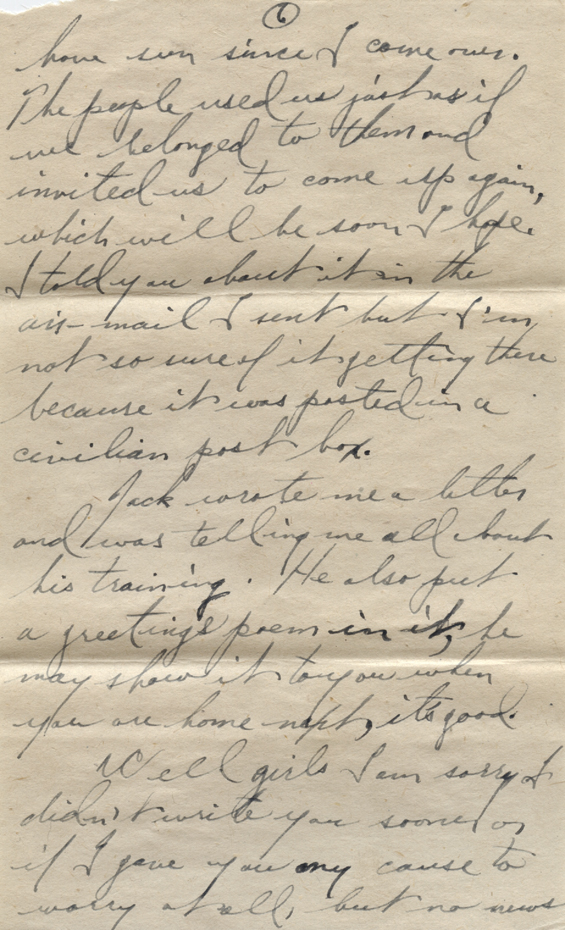 6
have seen since I come over.
The people used us just as if
we belonged to them and
invited us to come up again,
which will be soon I hope.
I told you about it in the
air-mail I sent but I'm
not so sure of it getting there
because it was posted in a
civilian post box.
Jack wrote me a letter
and was telling me all about
his training. He also put
a greetings poem in it, he
may show it to you when
you are home next, it's good.
Well girls I am sorry I
didn't write you sooner or
if I gave you any cause to
worry at all, but no news